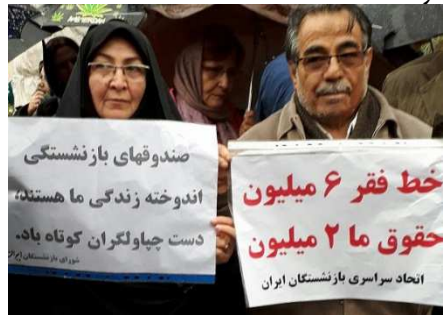 صندوقهای بازنشستگی
اندوخته زندگی ما هستند،
دست چپاولگران کوتاه باد.
شورای بازنشستگان ایران
خط فقر ۶ میلیون
حقوق ما ۲ میلیون
اتحاد سراسری بازنشستگان ایران